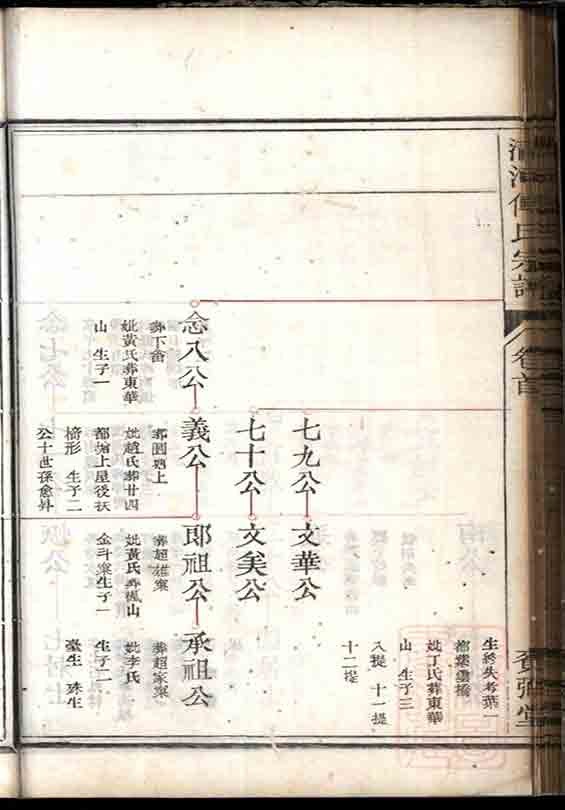 氏宗譜
卷首
堂
生終失考葬一
都
妣丁氏葬東華
山 生子三
入提 十一提
十二提
七九公 文華公
七十公 文美公
念八公 義公 郎祖公 承祖公
葬下畲
妣黃氏葬東華
山 生子一
妣趙氏葬廿四
都 上屋後扶
椅形 生子二
公十世孫愈舛
妣黃氏葬 山
金斗案生子一
葬趙家案
妣李氏
生子二
臺生 珠生